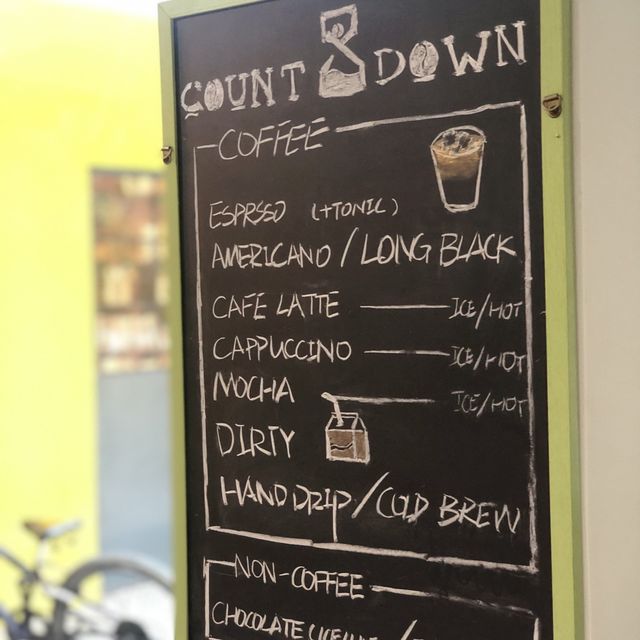 COUNT DOWN
COFFEE
ESPRSSO (+TONIC)
AMERICANO / LONG BLACK
CAFE LATTE ICE/HOT
CAPPUCCINO ICE/HOT
MOCHA ICE/HOT
DIRTY
HAND DRIP / COLD BREW
NON-COFFEE
CHOCOLATE